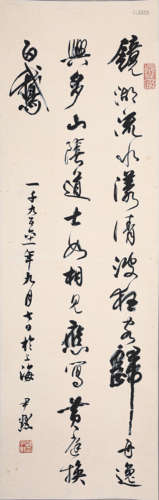 鏡湖流水漾清波狂客歸舟逸
興多山陰道士如相見應寫黃庭換
白鵝
一千九百六一年九月七日於上海 尹默